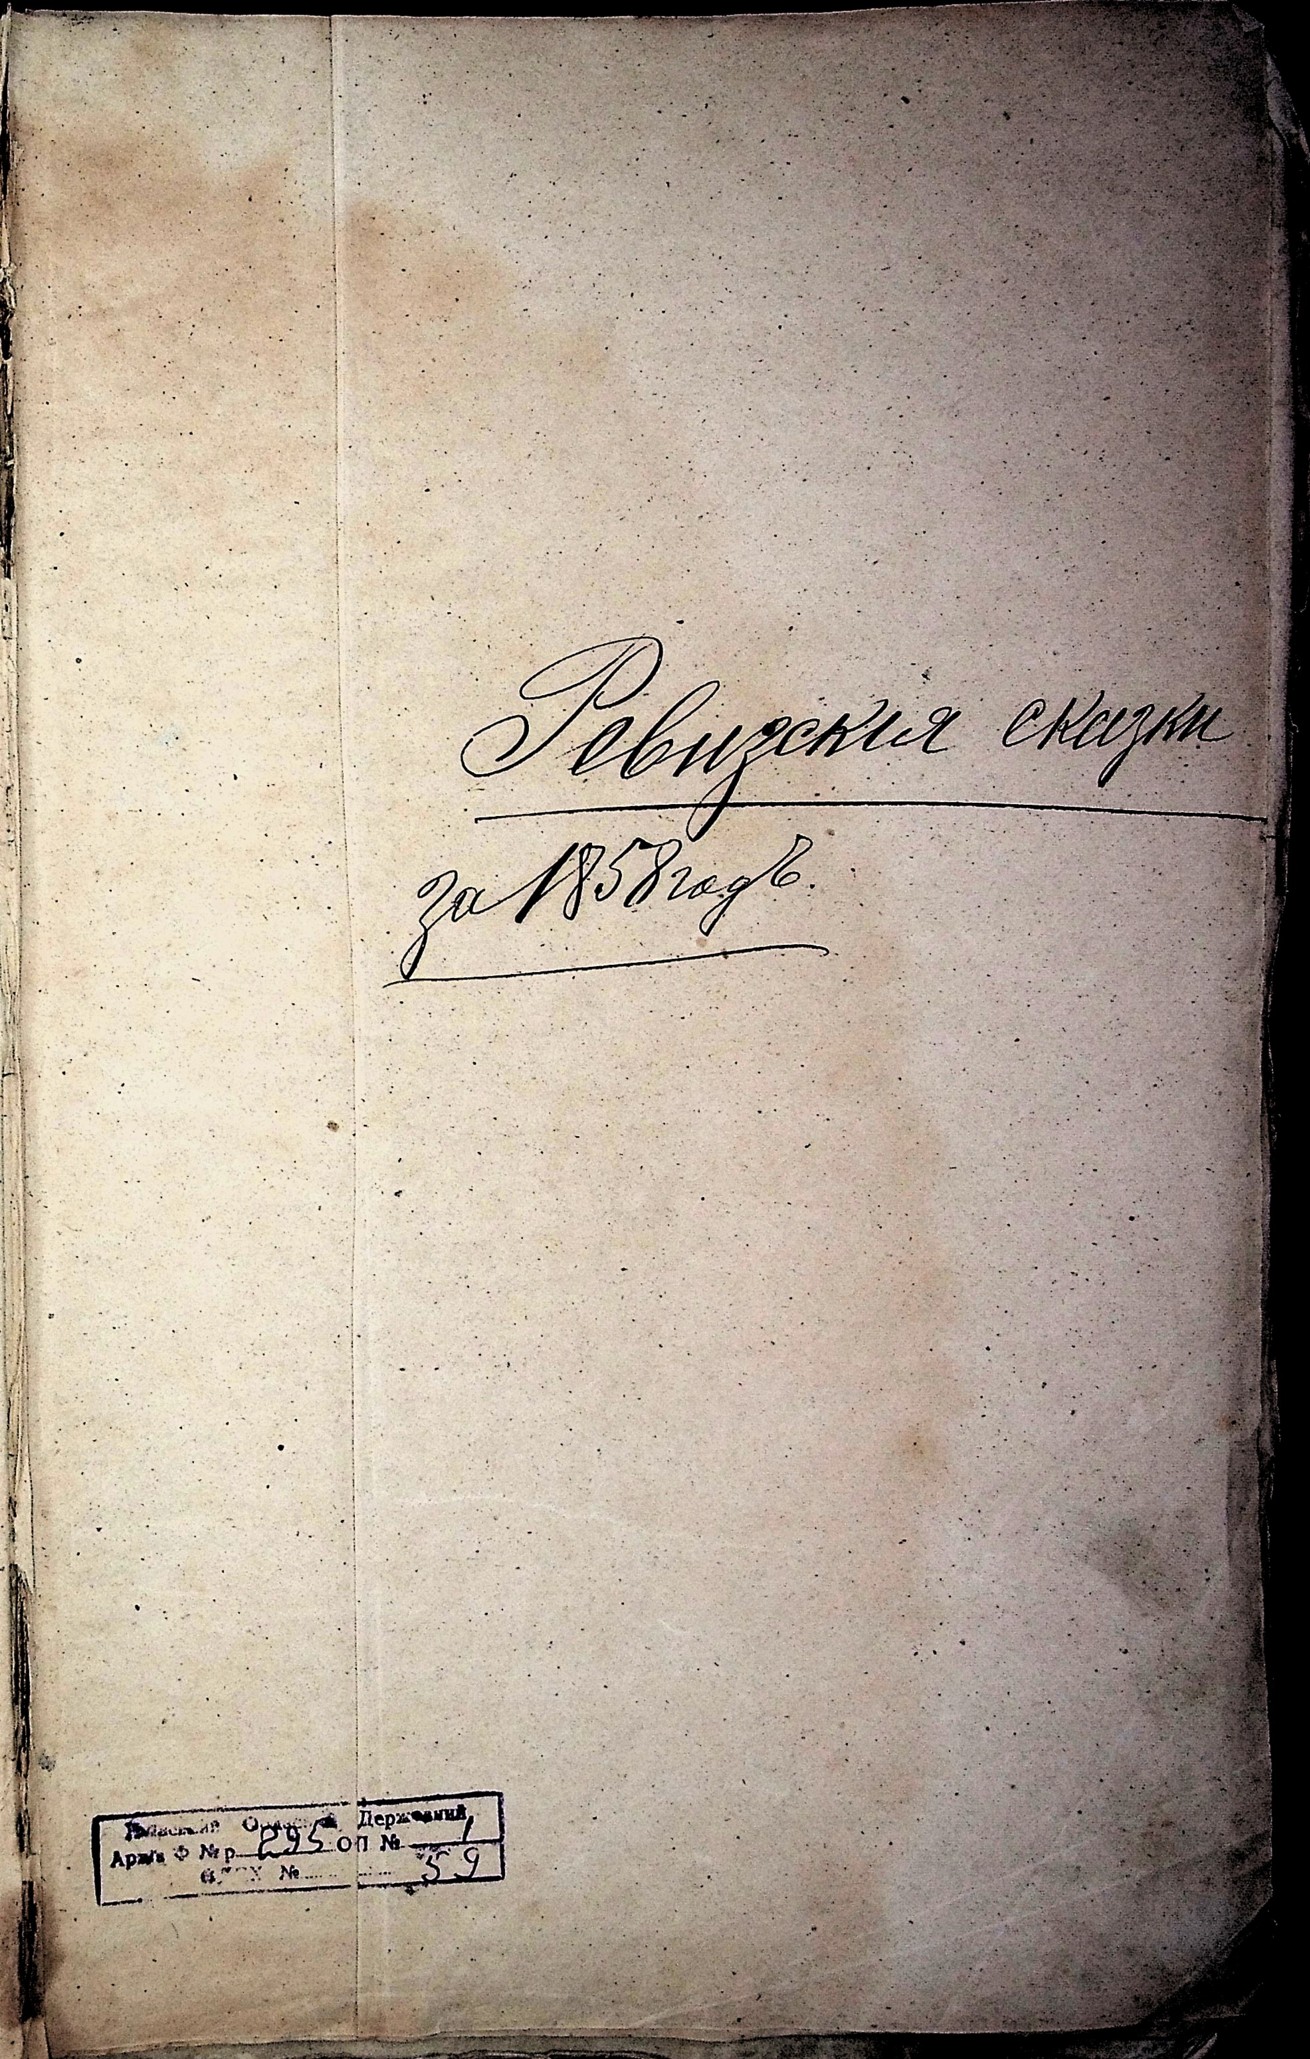 Ревизския сказки
за 1858 годъ.
Державний
Архів Ф № р 295 ОП № 1
№ 59